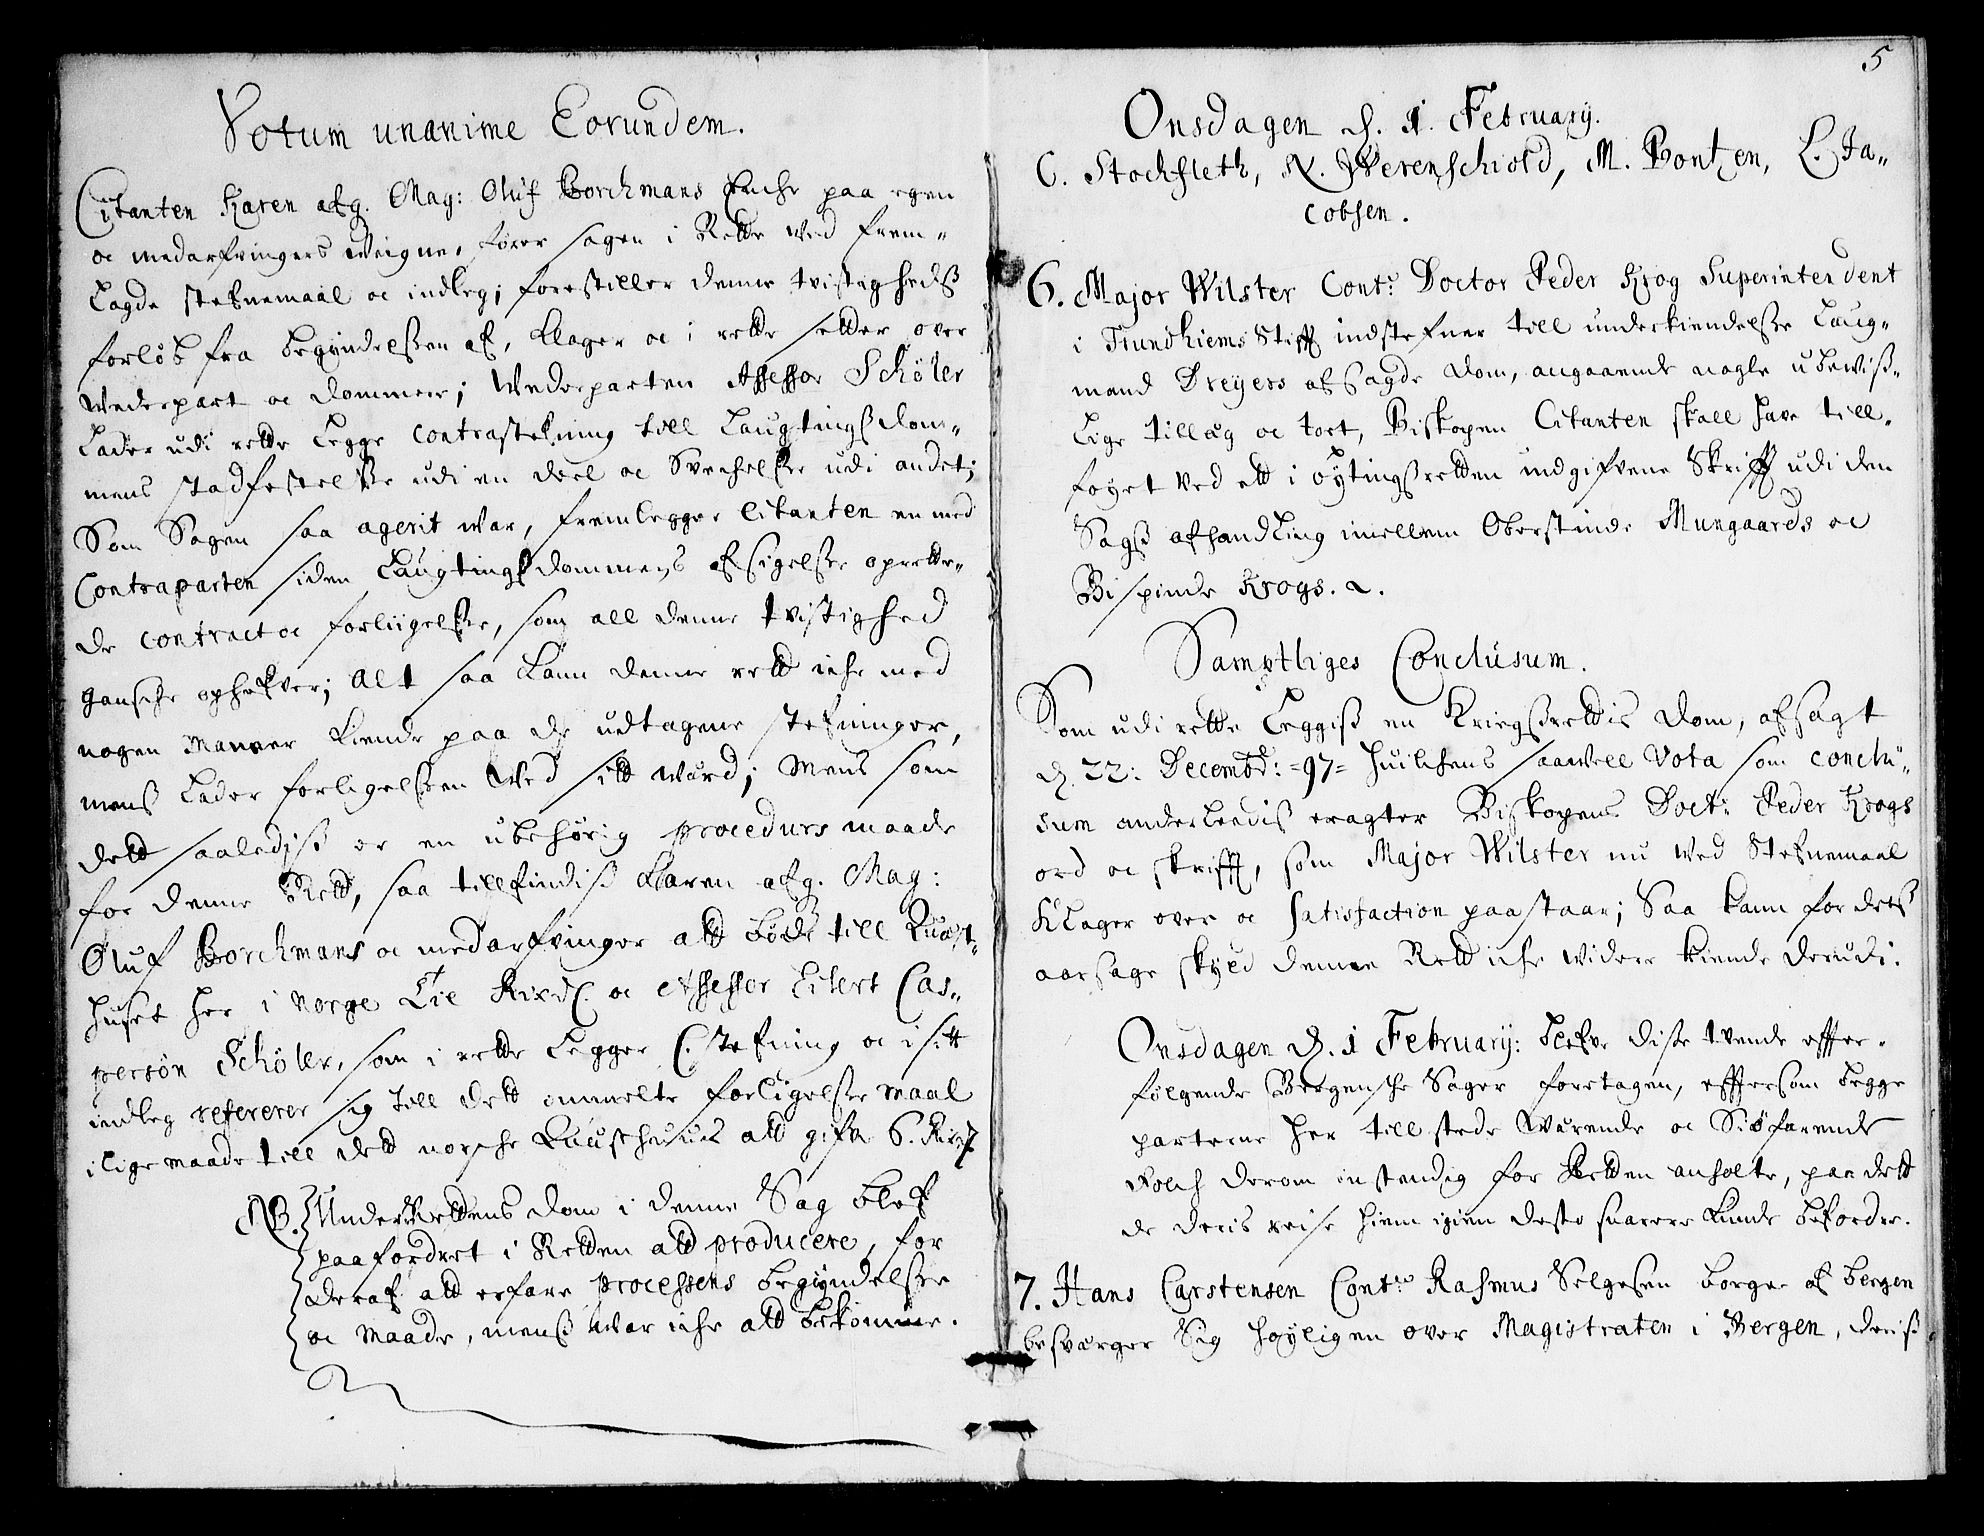 Votum unanime Eorundem.
Citanten Karen afg. Mag: Oluf Borchmans Enche paa egen
oc medarfvingers Weigne, fører sagen i Rette Wed frem-
lagde stefnemaal oc indleg; forestiller denne tvistigheds
forløb fra begyndelssen af, klager oc i rette setter over
Wederpart oc dommere; Wederparten Assessor Schøler
lader udi rette legge contrastefning till Laugtingss dom-
mens stadfestelsse udi en deel oc Svechelsse udi andet;
Som Sagen saa agerit war, fremlegger Citanten en med
Contraparten siden Laugtings dommens afsigelsse oprette-
de contract oc forliigelsse, som all denne tvistighed
gansche ophefver; alt saa kand denne rett iche med
nogen maneer kiende paa de udtagene stefninger,
menss lader forligelssen Wed sitt Wærd; Mens som
dett saalediss er en ubehørig procedurs maade
for denne Rett, saa tillfindiss Karen afg. Mag:
Oluf Borchmans oc medarfvinger att bøde till Quæst-
huset her i Norge Tie Rixd. oc Assessor Eilert Cas-
persøn Schøler, som i rette legger C. stefning oc i sitt
indleg refererer sig till dett ommelte forligelsse maal
i lige maade till dett norsche Quæsthuus att gifve 6. Rixd.
NB. UnderRettens dom i denne Sag blef
paafordret i Retten att producere, for
deraf att erfare processens begyndelsse
oc maade, menss war iche att bekomme.
5
Onsdagen d. 1. February.
C. Stochfleth, N. Werenschiold, M. Bontzen, L. Ja-
cobsen.
6. Major Wilster Cont: Doctor Peder Krog Superintendent
i Trundhiems Stifft indstefner till underkiendelsse Laug-
mand Dreyers afsagde dom, angaaende nogle ubewiss-
lige tillæg oc tort, Biskopen Citanten skall have till-
føyet Wed ett i Bytingssretten indgifvene Skrifft udi den
Sagss afhandling imellem Oberstinde Mungaards oc
Bispinde Krogs. 2.
Samptliges Conclusum.
Som udi rette leggiss en Kriegssrettis dom, afsagt
d. 22: Decembr: =97= huilchens saawell Vota som conclu-
sum anderledis eragter Biskopens Doct: Peder Krogs
ord oc skrifft, som Major Wilster nu Wed Stefnemaal
klager over oc satisfaction paastaar; Saa kand for dess
aarsage skyld denne Rett iche Widere kiende derudi.
Onsdagen d. 1 February: blefve disse tvende effter-
følgende Bergensche Sager foretagen, effttersom begge
parterne her till stede Wærende oc Siøfarende
Folch derom instendig for Retten anholte, paa dett
de deris reise hiem igien desto snarere kunde befordre.
7. Hans Carstensen Cont: Rasmus Selgesen borger af bergen
besværger Sig høyligen over Magistraten i Bergen, deriss